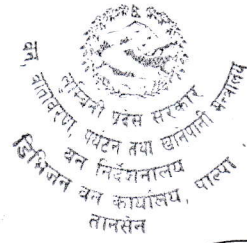 लुम्बिनी प्रदेश सरकार
वन, वातावरण, पर्यटन तथा खानपानी मन्त्रालय
वन निर्देशनालय
डिभिजन वन कार्यालय, पाल्पा
तानसेन